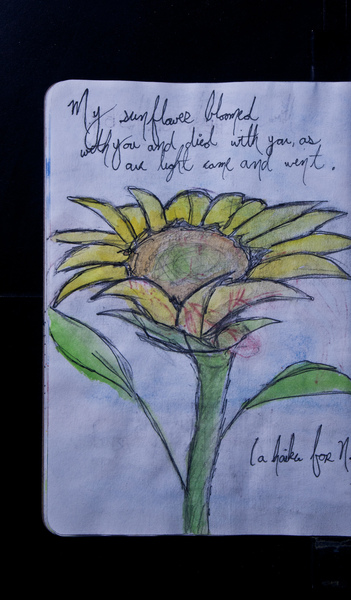 My sunflower bloomed
with you and died with you, as
our light came and went.
(a haiku for N.